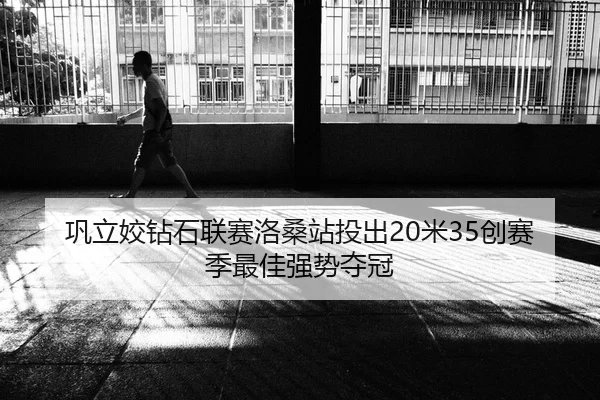 巩立姣钻石联赛洛桑站投出20米35创赛
季最佳强势夺冠